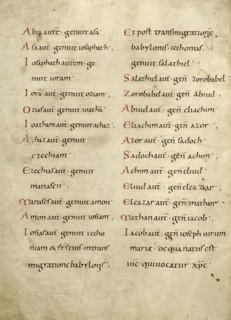 Abia aut̄ · genuit asa
Asa aut̄ · genuit iosaphath ·
Iosaphath autem · ge
nuit ioram ·
Ioram aut̄ · genuit oziam ·
Ozias aut̄ · genuit ioatha
Ioatham aut̄ · genuit achaz ·
Achaz aut̄ · genuit
ezechiam
Ezechias aut̄ · genuit
manassen
Manasses aut̄ · genuit amon
Amon aut̄ · genuit iosiam ·
Iosias aut̄ · genuit iecho
niam & fr̄s eius · in trans
migratione babylonis ·
Et post transmigrationē
babylonis · iechonias
genuit salathiel
Salathiel aut̄ · gen̄ zorobabel
Zorobabel aut̄ · gen̄ abiud
Abiud aut̄ · gen̄ eliachim
Eliachim aut̄ · gen̄ azor
Azor aut̄ · gen̄ sadoch
Sadoch aut̄ · gen̄ achim
Achim aut̄ · gen̄ eliud
Eliud aut̄ · gen̄ eleazar
Eleazar aut̄ · gen̄ mathan
Mathan aut̄ · gen̄ iacob ·
Iacob aut̄ · gen̄ ioseph uirum
mariae · de qua natus est
qui uocatur xp̄c